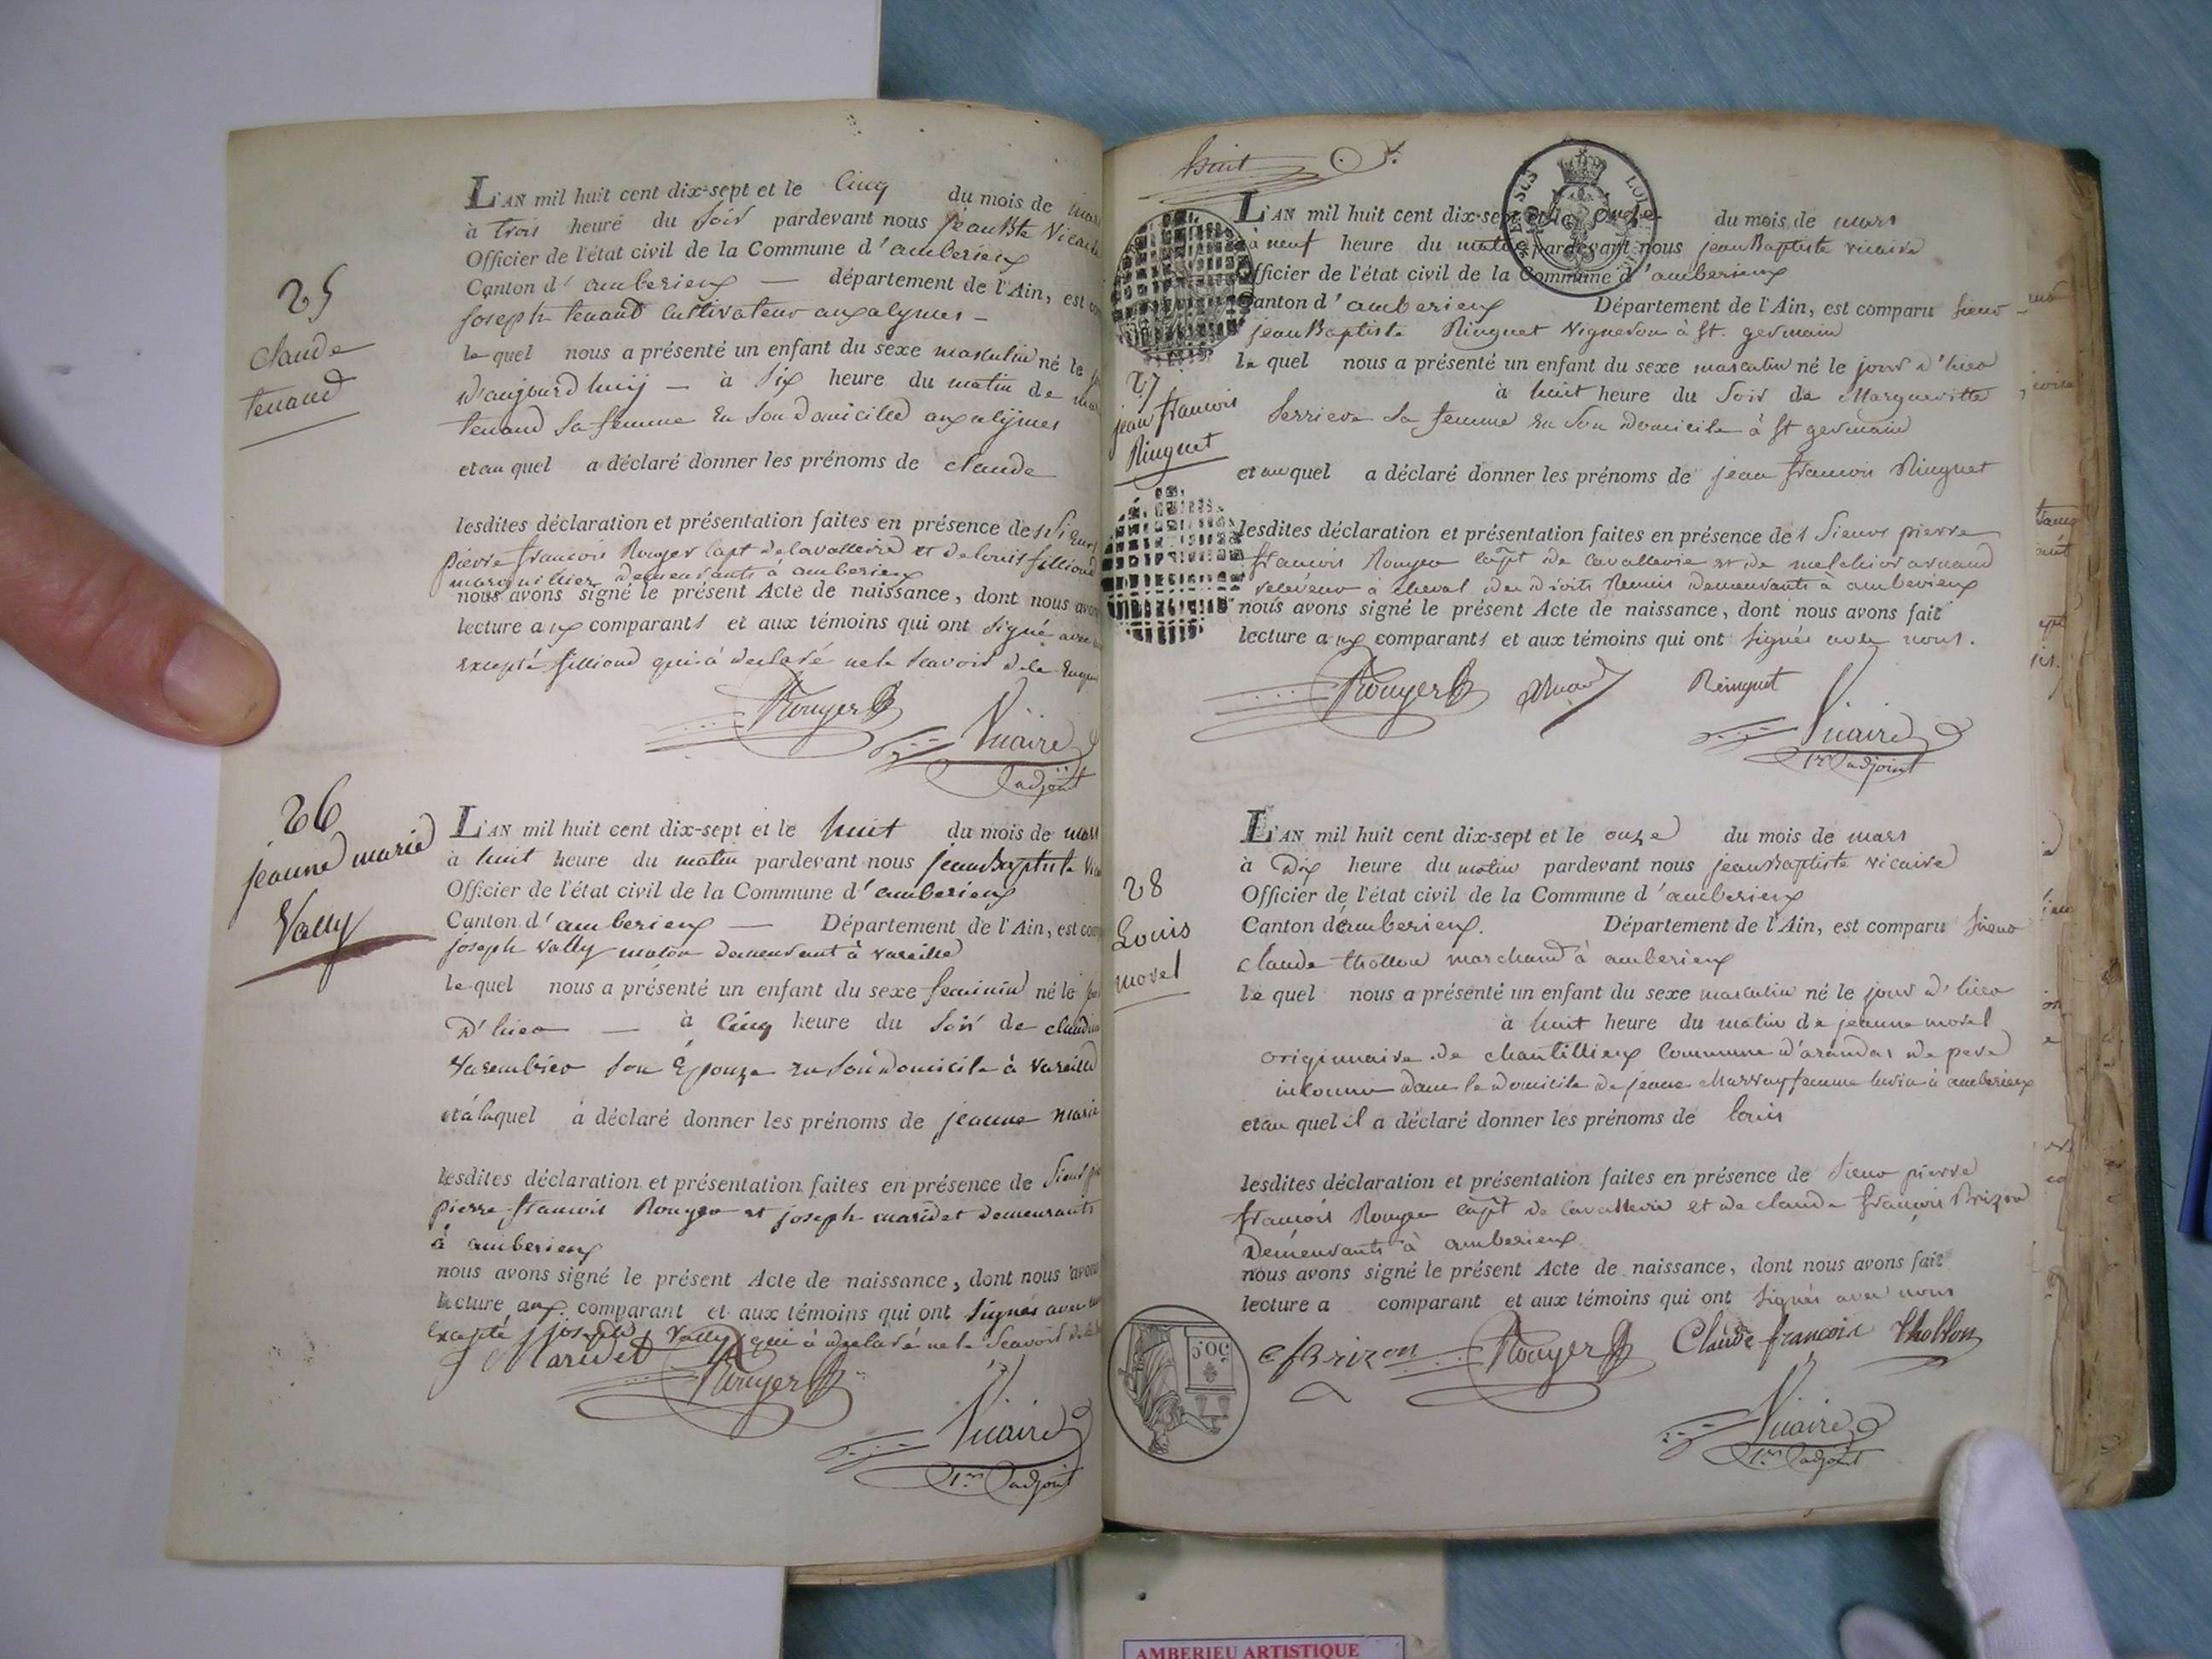 25
claude
tenand
L'AN mil huit cent dix-sept et le Cinq du mois de mars
à trois heure du soir pardevant nous jean Bte Vicaire
Officier de l'état civil de la Commune d'amberieux
Canton d'amberieux — département de l'Ain, est
joseph tenand cultivateur aux alymes —
lequel nous a présenté un enfant du sexe masculin né le
d'aujourd'huy — à Six heure du matin de
tenand Sa femme En Son domicille aux alymes
et au quel a déclaré donner les prénoms de claude
lesdites déclaration et présentation faites en présence des Sieurs
pierre francois Rouyer Capt de cavallerie et de louis fillioud
marguillier demeurants à amberieux
nous avons signé le présent Acte de naissance, dont nous
lecture aux comparants et aux témoins qui ont signé avec
Excepté fillioud qui à declaré ne le scavoir de le
Rouyer
Vicaire
adjoint
26
jeanne marie
Vally
L'AN mil huit cent dix-sept et le huit du mois de mars
à huit heure du matin pardevant nous jean Baptiste
Officier de l'état civil de la Commune d'amberieux
Canton d'amberieux — Département de l'Ain, est
joseph Vally maçon demeurant à Vareille
lequel nous a présenté un enfant du sexe feminin né le
D'hier — à Cinq heure du Soir de
Son Epouze En Son domicile à Vareille
et à laquel à déclaré donner les prénoms de jeanne marie
lesdites déclaration et présentation faites en présence de
pierre francois Rouyer et joseph maridet demeurants
à amberieux
nous avons signé le présent Acte de naissance, dont nous avons
lecture aux comparant et aux témoins qui ont Signés avec
Excepté joseph Vally qui à declaré ne le Scavoir
J Maridet
Rouyer
Vicaire
1er adjoint
huit
27
jean francois
Ringuet
L'AN mil huit cent dix-sept et le onze du mois de mars
à neuf heure du matin pardevant nous jean Baptiste vicaire
Officier de l'état civil de la Commune d'amberieux
Canton d'amberieux Département de l'Ain, est comparu Sieur
jean Baptiste Ringuet Vigneron à St. germain
le quel nous a présenté un enfant du sexe masculin né le jour d'hier
à huit heure du Soir de Margueritte
Serriere Sa femme En Son domicile à St germain
et au quel a déclaré donner les prénoms de jean francois Ringuet
lesdites déclaration et présentation faites en présence des Sieurs pierre
francois Rouyer Capt de cavallerie et de melchior arnaud
receveur à cheval des droits Reunis demeurants à amberieux
nous avons signé le présent Acte de naissance, dont nous avons fait
lecture aux comparants et aux témoins qui ont Signés avec nous.
Rouyer Arnaud Reinguet
Vicaire
1er adjoint
28
Louis
morel
L'AN mil huit cent dix-sept et le onze du mois de mars
à Dix heure du matin pardevant nous jean Baptiste vicaire
Officier de l'état civil de la Commune d'amberieux
Canton d'amberieux. Département de l'Ain, est comparu Sieur
claude thollon marchand à amberieux
le quel nous a présenté un enfant du sexe masculin né le jour d'hier
à huit heure du matin de jeanne morel
originaire de chantillieux commune d'arandas de pere
inconnu dans le domicile de jeanne femme à amberieux
et au quel il a déclaré donner les prénoms de louis
lesdites déclaration et présentation faites en présence de Sieur pierre
francois Rouyer Capt de cavallerie et de claude francois Brizon
Demeurants à amberieux
nous avons signé le présent Acte de naissance, dont nous avons fait
lecture a comparant et aux témoins qui ont Signés avec nous
cf Brizon Rouyer Claude françois thollon
Vicaire
1er adjoint
50C
AMBERIEU ARTISTIQUE